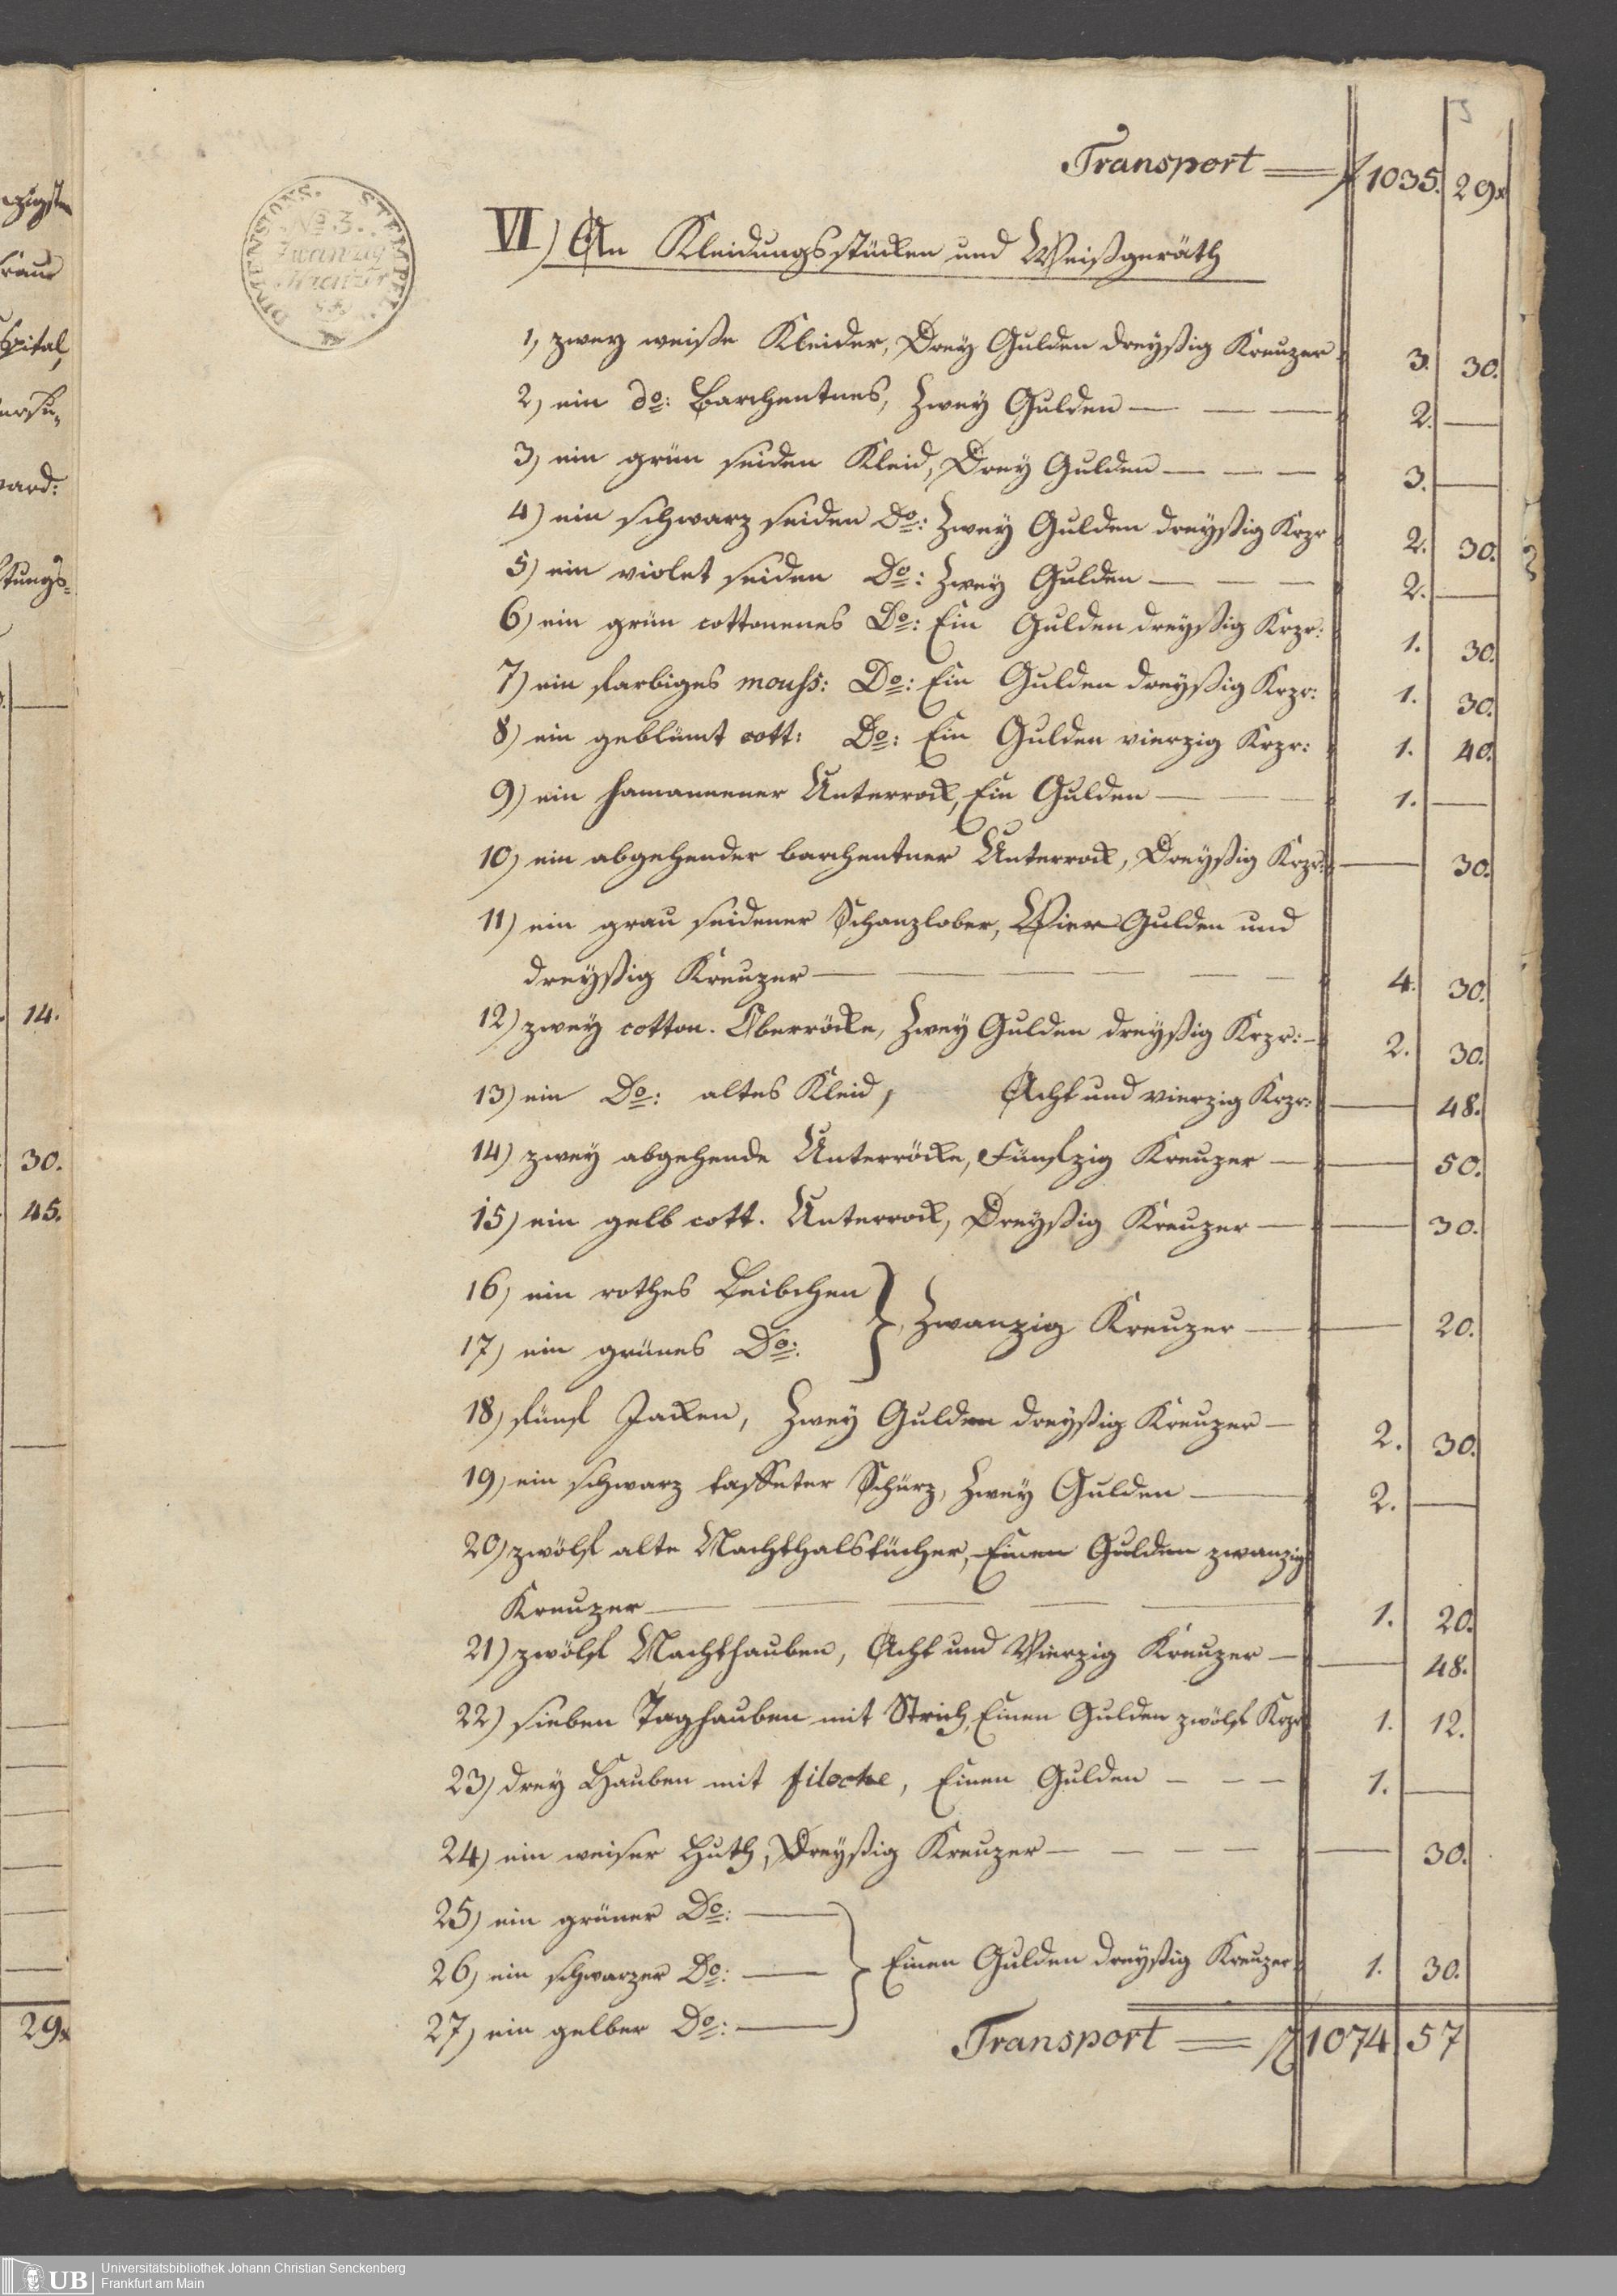 Transport = f 1035. 29x
VI) An Kleidungsstücken und Weißgeräth
1, zwey weiße Kleider, Drey Gulden dreyßig Kreuzer 3. 30.
2, ein do: Barchentnes, Zwey Gulden — — — 2. —
3) ein grün seiden Kleid, Drey Gulden — — — 3. —
4) ein schwarz seiden Do: Zwey Gulden dreyßig Krzr 2. 30.
5) ein violet seiden Do: Zwey Gulden — — — 2. —
6) ein grün cottonenes Do: Ein Gulden dreyßig Krzr: 1. 30.
7) ein farbiges mouss: Do: Ein Gulden dreyßig Krzr: 1. 30.
8) ein geblümt cott: Do: Ein Gulden vierzig Krzr: 1. 40.
9) ein hamannener Unterrock, Ein Gulden — — 1. —
10) ein abgehender barchentner Unterrock, Dreyßig Krzr: — 30.
11) ein grau seidener Schanzlober, Vier Gulden und
dreyßig Kreuzer — — — — — 4. 30.
12) zwey cotton. Oberröcke, Zwey Gulden dreyßig Krzr: — 2. 30.
13) ein Do: altes Kleid, Acht und vierzig Krzr: — 48.
14) zwey abgehende Unterröcke, Fünfzig Kreuzer — — 50.
15) ein gelb cott. Unterrock, Dreyßig Kreuzer — — 30.
16) ein rothes Leibchen
17) ein grünes Do: } Zwanzig Kreuzer — — 20.
18) fünf Jacken, Zwey Gulden dreyßig Kreuzer — 2. 30.
19) ein schwarz taffeter Schürz, Zwey Gulden — 2. —
20) zwölf alte Nachthalstücher, Einen Gulden zwanzig
Kreuzer — — — — — 1. 20.
21) zwölf Nachthauben, Acht und Vierzig Kreuzer — — 48.
22) sieben Taghauben mit Strich, Einen Gulden zwölf Krzr 1. 12.
23) drey Hauben mit filoche, Einen Gulden — — — 1. —
24) ein weiser Huth, Dreyßig Kreuzer — — — — — 30.
25) ein grüner Do: —
26) ein schwarzer Do: — } Einen Gulden dreyßig Kreuzer 1. 30.
27) ein gelber Do: —
Transport = f 1074. 57
DIMENSIONS. STEMPEL.
No 3.
Zwanzig
Kreuzer
14.
30.
45.
29x
UB Universitätsbibliothek Johann Christian Senckenberg
Frankfurt am Main